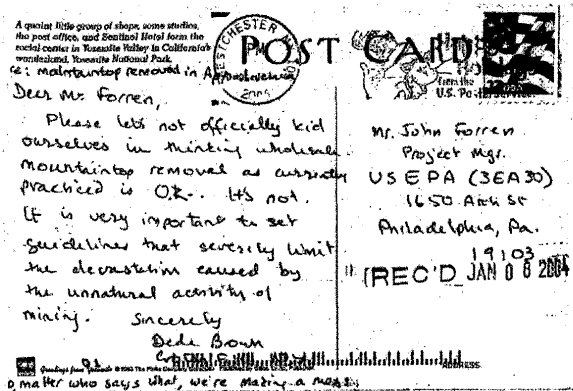 A quaint little group of shops, some studios,
the post office, and Sentinel Hotel form the
social center in Yosemite Valley in California's
wonderland, Yosemite National Park.
WESTCHESTER
PM
POST CARD
from the
U.S. Postal Service
re: mountaintop removed in Appalachia
Dear Mr. Forren,
Please let's not officially kid
ourselves in thinking wholesale
mountaintop removal as currently
practiced is O.K. It's not.
It is very important to set
guidelines that severely limit
the devastation caused by
the unnatural activity of
mining. Sincerely
Dede Brown
Mr. John Forren
Project Mgr.
US EPA (3EA30)
1650 Arch St
Philadelphia, Pa.
19103
REC'D JAN 08 2004
Greetings from
ADDRESS
matter who says what, we're making a mess.